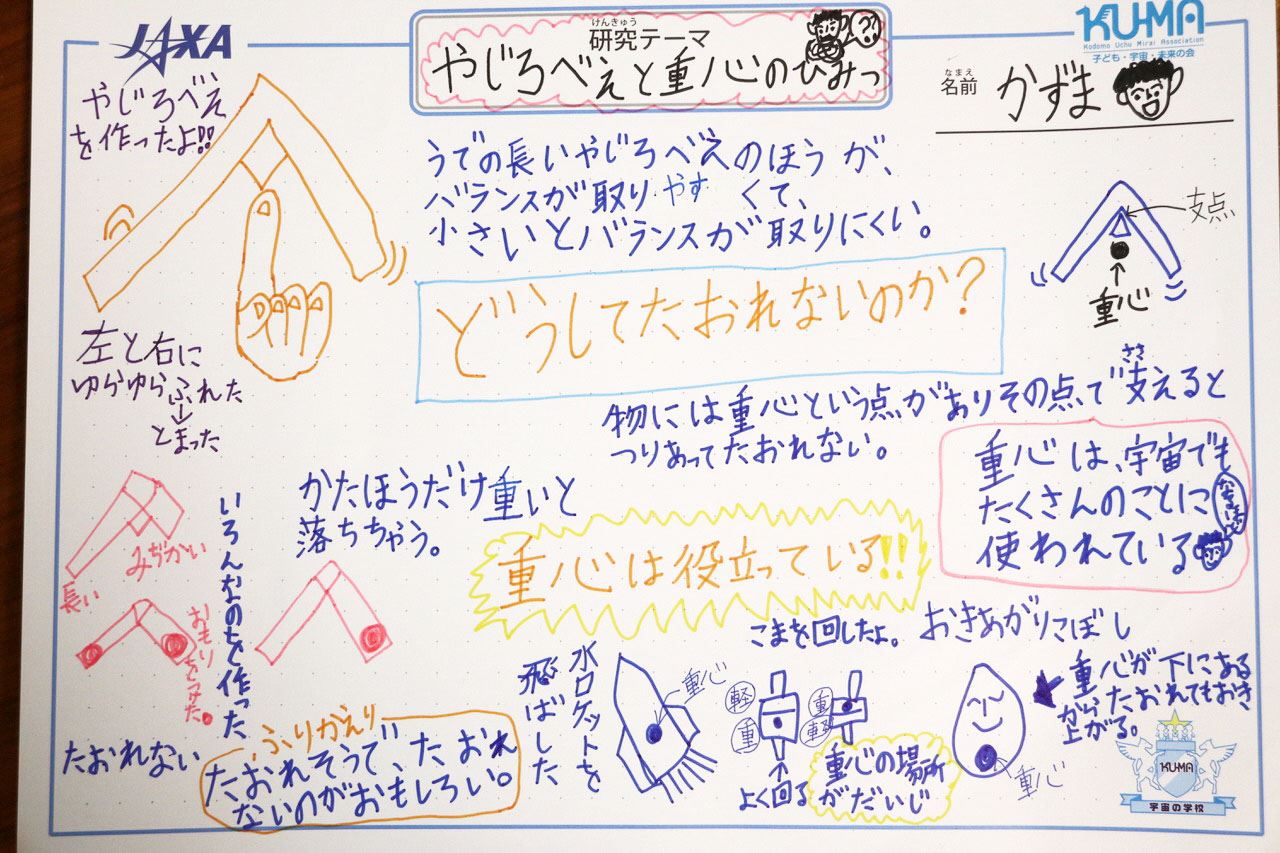 JAXA
研究テーマ
けんきゅう
やじろべえと重心のひみつ
KU-MA
Kodomo Uchu Mirai Association
子ども・宇宙・未来の会
なまえ
名前
かずま
やじろべえ
を作ったよ!!
うでの長いやじろべえのほうが、
バランスが取りやすくて、
小さいとバランスが取りにくい。
支点
重心
どうしてたおれないのか?
左と右に
ゆらゆらふれた
↓
とまった
物には重心という点がありその点で支えると
ささ
つりあってたおれない。
重心は、宇宙でも
たくさんのことに
使われている
かたほうだけ重いと
落ちちゃう。
重心は役立っている!!
みぢかい
長い
おもり
いろんなのを作った
たおれない
ふりかえり
たおれそうで、たおれ
ないのがおもしろい。
水ロケットを
飛ばした
重心
こまを回したよ。
軽
重
重
軽
よく回る
重心の場所
がだいじ
おきあがりこぼし
重心が下にある
から、たおれてもおき
上がる。
重心
KU-MA
宇宙の学校